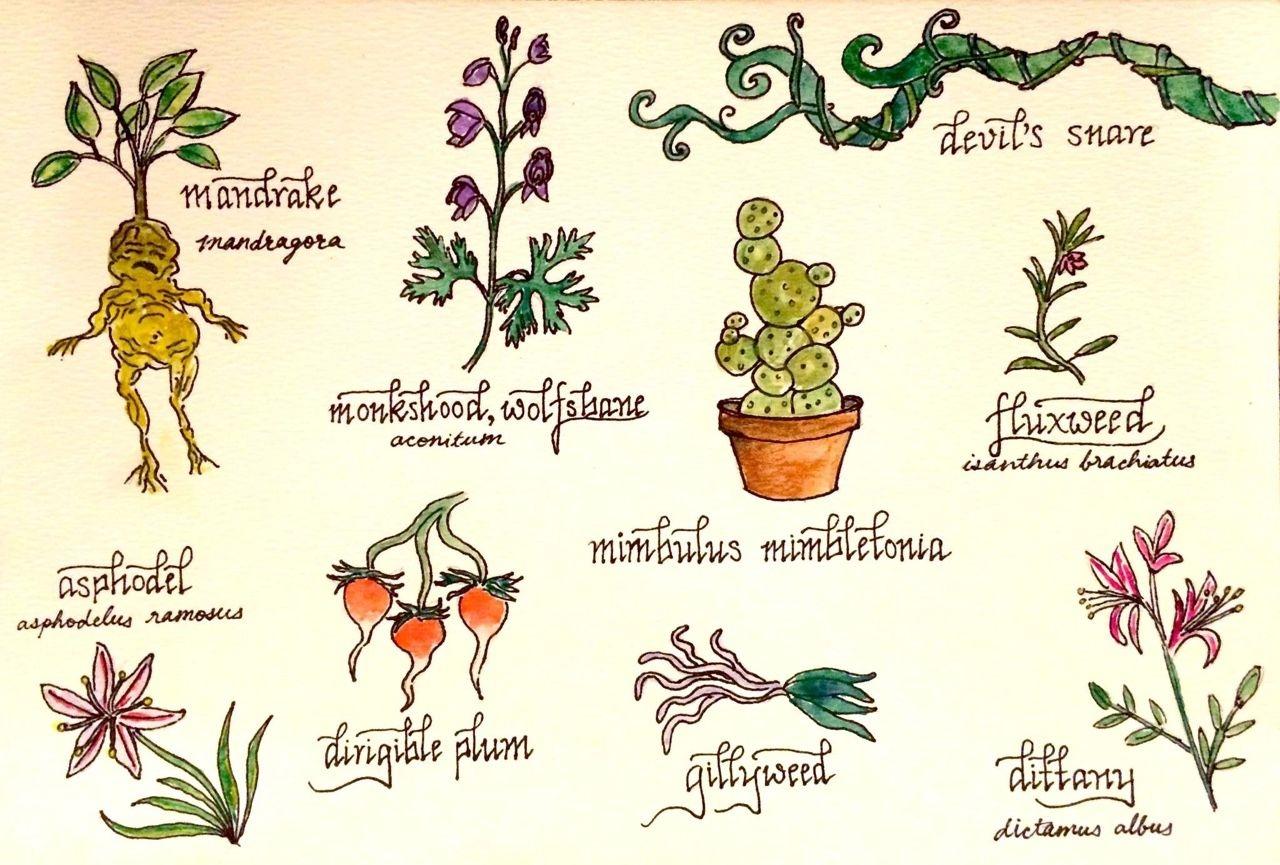 mandrake
mandragora
monkshood, wolfsbane
aconitum
devil's snare
mimbulus mimbletonia
fluxweed
isanthus brachiatus
asphodel
asphodelus ramosus
dirigible plum
gillyweed
dittany
dictamus albus